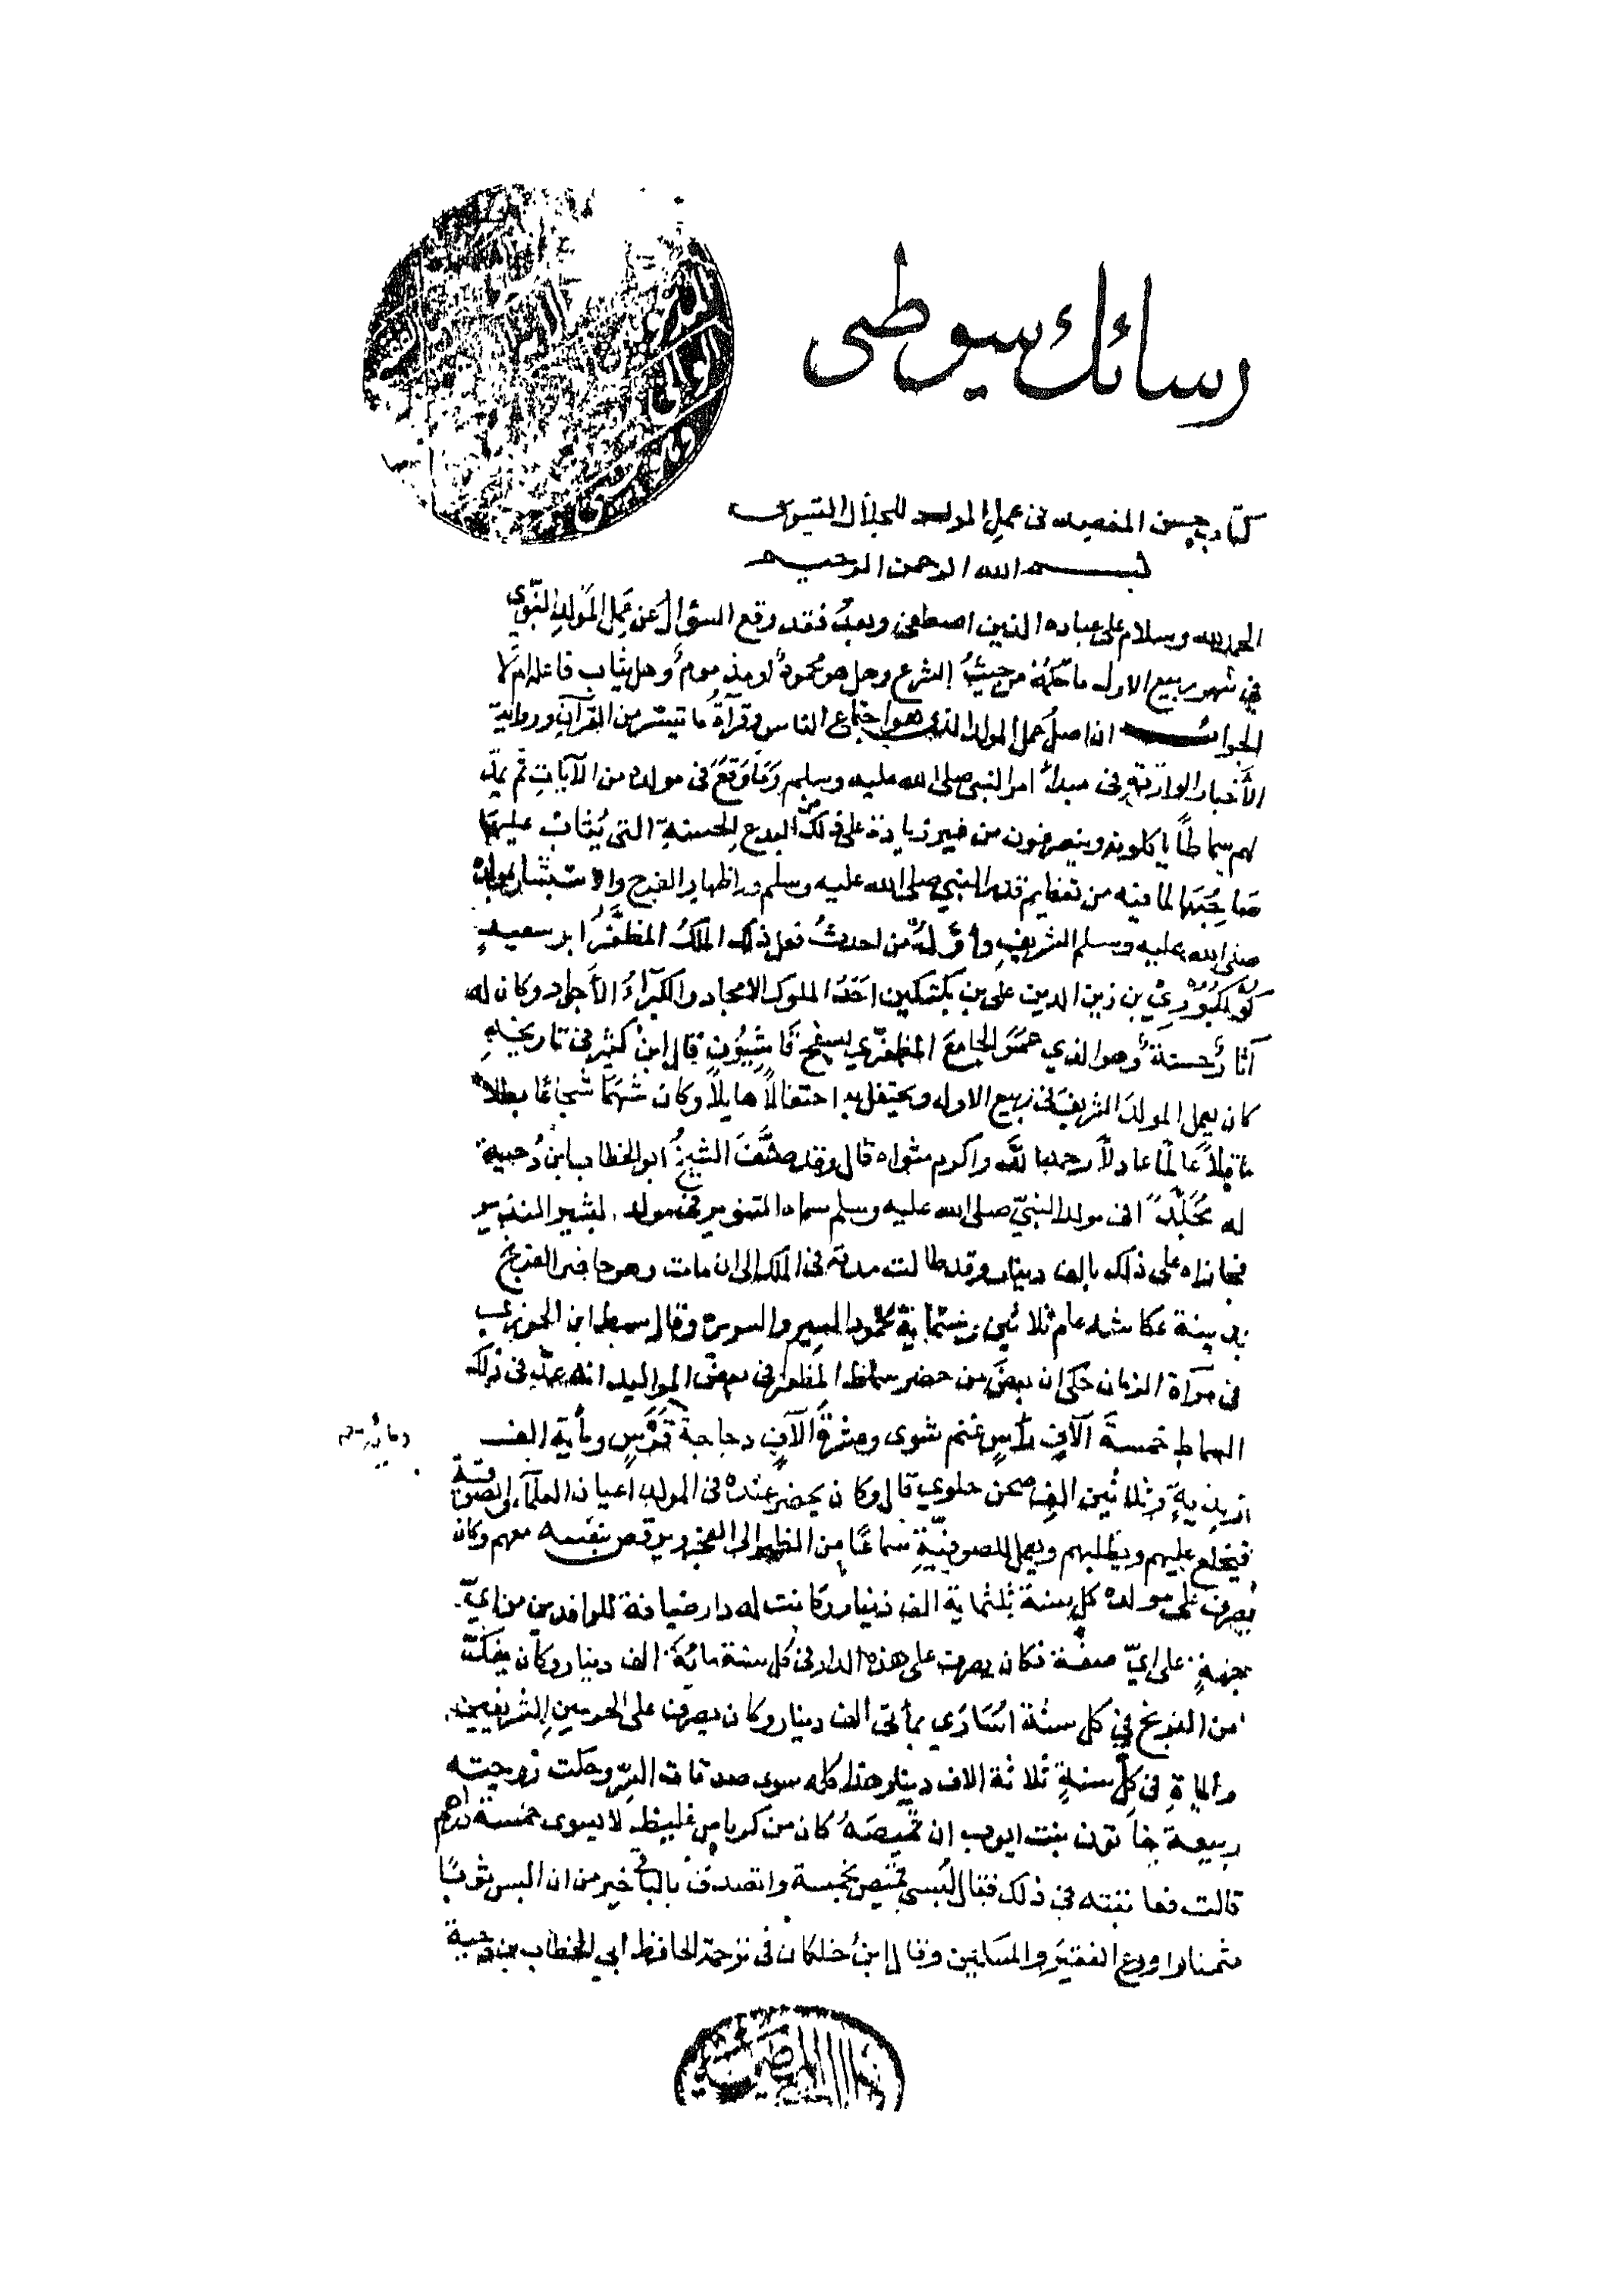 رسائل سيوطى
كتاب حسن المقصد فى عمل المولد للجلال السيوطى
بسم الله الرحمن الرحيم
الحمد لله وسلام على عباده الذين اصطفى وبعد فقد وقع السؤال عن عمل المولد النبوي
في شهر ربيع الاول ما حكمه من حيث الشرع وهل هو محمود او مذموم وهل يثاب فاعله ام لا
الجواب ان اصل عمل المولد الذى هو اجتماع الناس وقرآة ما تيسر من القرآن ورواية
الأخبار الواردة فى مبدأ امر النبى صلى الله عليه وسلم وما وقع فى مولده من الآيات ثم يمد
لهم سماطا ياكلونه وينصرفون من غير زيادة على ذلك من البدع الحسنة التى يثاب عليها
صاحبها لما فيه من تعظيم قدر النبي صلى الله عليه وسلم واظهار الفرح والاستبشار بمولده
صلى الله عليه وسلم الشريف وأول من احدث فعل ذلك الملك المظفر ابو سعيد
كوكبورى بن زين الدين على بن بكتكين احد الملوك الامجاد والكبرآء الأجواد وكان له
آثار حسنة وهو الذي عمر الجامع المظفري بسفح قاسيون قال ابن كثير فى تاريخه
كان يعمل المولد الشريف فى ربيع الاول ويحتفل به احتفالا هايلا وكان شهما شجاعا بطلا
عاقلا عالما عادلا رحمه الله واكرم مثواه قال وقد صنف الشيخ ابو الخطاب ابن دحية
له مجلدا فى مولد النبي صلى الله عليه وسلم سماه التنوير فى مولد البشير النذير
فجازاه على ذلك بالف دينار وقد طالت مدته فى الملك الى ان مات وهو حاضر الفرنج
بمدينة عكا سنة عام ثلاثين وستماية محمود السير والسيرة وقال سبط ابن الجوزى
فى مرآة الزمان حكى ان بعض من حضر سماط المظفر فى بعض المواليد انه عد فى ذلك
السماط خمسة آلاف رأس غنم شوى وعشرة آلاف دجاجة ومأية الف
زبدية وثلاثين الف صحن حلوي قال وكان يحضر عنده فى المولد اعيان العلمآء والصوفية
فيخلع عليهم ويطلبهم ويعمل للصوفية سماعا من الظهر الى الفجر ويرقص بنفسه معهم وكان
يصرف على مولده كل سنة ثلثماية الف دينار وكانت له دار ضيافة للوافدين من اي
جهة على اي صفة فكان يصرف على هذه الدار فى كل سنة ماية الف دينار وكان يفك
من الفرنج في كل سنة اسارى بمأتى الف دينار وكان يصرف على الحرمين الشريفين
فى كل سنة ثلاثة الاف دينار هذا كله سوى صدقات السر وحكت زوجته
ربيعة خاتون بنت ايوب ان قميصه كان من كرباس غليظ لا يسوى خمسة دراهم
قالت فعاتبته في ذلك فقال لبسى قميص بخمسة واتصدق بالباقى خير من ان البس ثوبا
مثمنا وادع الفقير والمساكين وقال ابن خلكان فى ترجمة الحافظ أبي الخطاب بن دحية